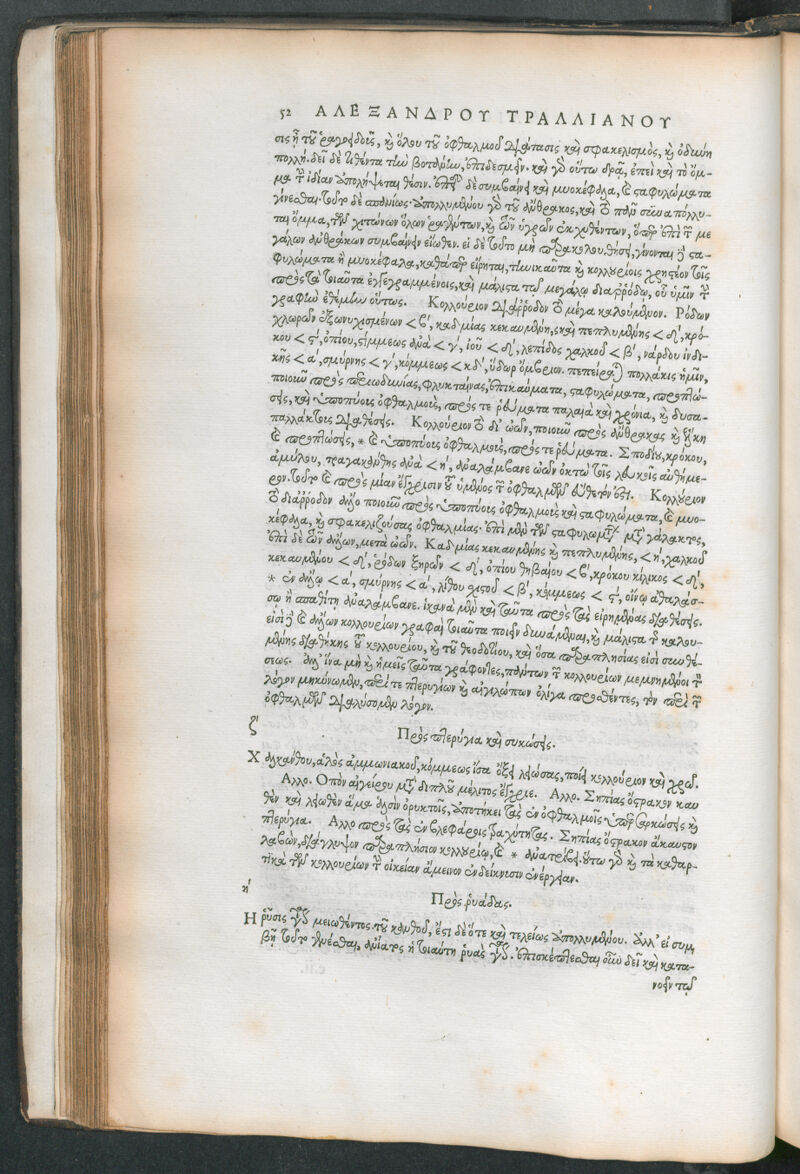 52 ΑΛΕΞΑΝΔΡΟΥ ΤΡΑΛΛΙΑΝΟΥ
σις ἢ τοῦ ῥαγοειδοῦς, καὶ ὅλου τοῦ ὀφθαλμοῦ διάτασις καὶ σφακελισμὸς, καὶ ὀδύνη
πολλή. δεῖ δὲ τιθέντα τὴν βοτάνην, ἐπιδεσμεῖν. καὶ γὰρ οὕτω δρᾷ, ἐπεὶ καὶ τὸ ὄμ-
μα τὴν ἰδίαν ἀπολήψεται θέσιν. δὲ συμβαίνει καὶ μυοκέφαλα, καὶ σαφυλώματα
γίνεσθαι. τοῦτο δὲ σπανίως. ἀπολλυμένου γὰρ τοῦ ἄνθρακος, καὶ τὸ πᾶν συναπόλλυ-
ται ὄμμα, τῶν χιτώνων ὅλων ῥαγέντων, καὶ τῶν ὑγρῶν ἐκχυθέντων, ὅπερ ἐπὶ τῶν με
γάλων ἀνθράκων συμβαίνειν εἴωθεν. εἰ δὲ τοῦτο μὴ παρακολουθήσῃ, γίνονται γὰρ σα-
φυλώματα ἢ μυοκέφαλα, καθάπερ εἴρηται, τηνικαῦτα καὶ κολλυρίοις χρησέον τοῖς
πρὸς τὰ τοιαῦτα ἐγγεγραμμένοις, καὶ μάλιστα τῷ μεγάλῳ διαρρόδῳ, οὗ ὑμῖν τὴν
γραφὴν ἐθέμην οὕτως. Κολλούριον διάρροδον τὸ μέγα καλούμενον. Ῥόδων
χλωρῶν ἐξωνυχισμένων, καδμίας κεκαυμένης καὶ πεπλυμένης, κρό-
κου, ὀπίου, στίμμεως ἀνὰ < γ΄, ἰοῦ, λεπίδος χαλκοῦ < β΄, νάρδου ἰνδι-
κῆς < α΄, σμύρνης < γ΄, κόμμεως < κδ΄, ὕδωρ ὄμβριον. πεπείραται πολλάκις ἡμῖν,
ποιοῦν πρὸς περιωδυνίας, φλυκταίνας, ἐπικαύματα, σαφυλώματα, προπτώ-
σεις, καὶ ὑποπύοις ὀφθαλμοῖς, πρός τε ῥεύματα παλαιὰ καὶ χρόνια, καὶ δυσα-
παλλάκτοις διαθέσεις. Κολλούριον τὸ δι᾽ ὠῶν, ποιοῦν πρὸς ἄνθρακας καὶ ἕλκη
καὶ προπτώσεις, * καὶ ὑποπύοις ὀφθαλμοῖς, πρός τε ῥεύματα. Σποδίου, κρόκου,
ἀμύλου, τραγακάνθης ἀνὰ < η΄, ἀναλάμβανε ὠῶν ὀκτὼ τοῖς λευκοῖς αὐθήμε-
ρον. τοῦτο καὶ πρὸς μίαν ἔγχρισιν τῶν ὀφθαλμῶν εὔθετόν ἐστι. Κολλύριον
τὸ διάρροδον ἄλλο ποιοῦν πρὸς ὑποπύοις ὀφθαλμοῖς καὶ σαφυλώματα, καὶ μυο-
κέφαλα, καὶ σφακελιζούσας ὀφθαλμίας. ἐπὶ μὲν τῶν σαφυλωμάτων μετὰ γάλακτος,
ἐπὶ δὲ τῶν ἄλλων, μετὰ ὠῶν. Καδμίας κεκαυμένης καὶ πεπλυμένης, < η΄, χαλκοῦ
κεκαυμένου, ῥόδων ξηρῶν, ὀπίου θηβαίου, κρόκου κίλικος,
* ἐν ἄλλῳ < α΄, σμύρνης < α΄, λίθου σχιστοῦ < β΄, κόμμεως < ϛ΄, οἴνῳ ἀθαλάσ-
σῳ ἢ ἀπαθίτῃ ἀναλάμβανε. ἱκανὰ μὲν καὶ ταῦτα πρὸς τὰς εἰρημένας διαθέσεις.
εἰσὶ γὰρ καὶ ἄλλων κολλουρίων γραφαὶ τοιαῦτα ποιεῖν δυνάμεναι, καὶ μάλιστα τοῦ καλου-
μένης διαθήκης τοῦ κολλουρίου, καὶ τοῦ θεοδοτίου, καὶ ὅσα παραπλησίας εἰσὶ συνθέ-
σεως. ἀλλ᾽ ἵνα μὴ καὶ ἡμεῖς ταῦτα γράφοντες, πάντων τῶν κολλουρίων μεμνημένοι τὸν
λόγον μηκύνωμεν, περί τε πτερυγίων καὶ αἰγιλώπων ὀλίγα προσθέντες, τὸν περὶ τῶν
ὀφθαλμῶν διαλύσομεν λόγον.
ζ΄
Πρὸς πτερύγια καὶ συκώσεις.
Χαλκάνθου, ἁλὸς ἀμμωνιακοῦ, κόμμεως ἴσα ὄξει λειώσας, ποίει κολλούριον καὶ χρῶ.
Ἄλλο. Ὀπὸν αἰγείρου μετὰ διπλοῦ μέλιτος ἔγχριε. Ἄλλο. Σηπίας ὄστρακον καυ
θὲν καὶ λειωθὲν ἅμα ἁλσὶν ὀρυκτοῖς, ἀποτήκει τὰς ἐν ὀφθαλμοῖς ὑπερσαρκώσεις καὶ
πτερύγια. Ἄλλο πρὸς τὰς ἐν βλεφάροις τραχύτητας. Σηπίας ὄστρακον ἄκαυστον
λαβὼν, διάγλυψον παραπλήσιον κολλυρίῳ, καὶ * ἀνάτριβε. οὕτω γὰρ καὶ τὰ καθαρ-
τικὰ τῶν κολλουρίων τὴν οἰκείαν ἄμεινον ἐνδείκνυσιν ἐνέργειαν.
η΄
Πρὸς ῥυάδας.
Ἡ ῥύσις γίνεται μειωθέντος τοῦ κανθοῦ, ἔστι δὲ ὅτε καὶ τελείως ἀπολλυμένου. ἀλλ᾽ εἰ συμ-
βῇ τοῦτο γενέσθαι, ἀνίατος ἡ τοιαύτη ῥυὰς γίνεται. ἐπισκέπτεσθαι οὖν δεῖ καὶ κατα-
νοεῖν τῷ